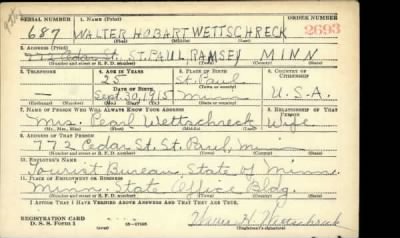 SERIAL NUMBER 1. NAME (Print) ORDER NUMBER
687 WALTER HOBART WETTSCHRECK 2693
(First) (Middle) (Last)
2. ADDRESS (Print)
772 Cedar St. ST. PAUL, RAMSEY MINN
(Number and street or R. F. D. number) (Town) (County) (State)
3. TELEPHONE 4. AGE IN YEARS 5. PLACE OF BIRTH 6. COUNTRY OF CITIZENSHIP
25 St. Paul
DATE OF BIRTH (Town or county)
— Sept. 30, 1915 Minn U.S.A.
(Exchange) (Number) (Mo.) (Day) (Yr.) (State or country)
7. NAME OF PERSON WHO WILL ALWAYS KNOW YOUR ADDRESS 8. RELATIONSHIP OF THAT PERSON
Mrs. Pearl Wettschreck Wife
(Mr., Mrs., Miss) (First) (Middle) (Last)
9. ADDRESS OF THAT PERSON
772 Cedar St. St. Paul, Minn
(Number and street or R. F. D. number) (Town) (County) (State)
10. EMPLOYER'S NAME
Tourist Bureau, State of Minn.
11. PLACE OF EMPLOYMENT OR BUSINESS
Minn. State Office Bldg.
(Number and street or R. F. D. number) (Town) (County) (State)
I AFFIRM THAT I HAVE VERIFIED ABOVE ANSWERS AND THAT THEY ARE TRUE.
REGISTRATION CARD
D. S. S. Form 1
(Registrant's signature)